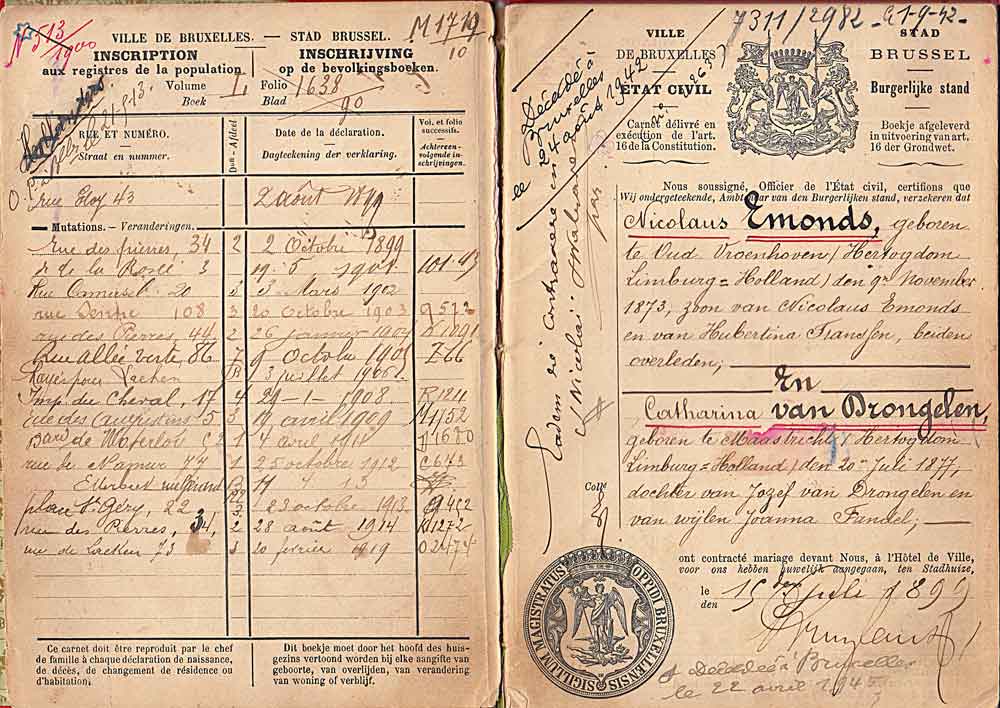 N 513/1900
VILLE DE BRUXELLES. — STAD BRUSSEL.
M 1719
10
INSCRIPTION
aux registres de la population.
INSCHRIJVING
op de bevolkingsboeken.
Volume
Boek
I
Folio
Blad
1638
90
21-8-13.
RUE ET NUMÉRO.
Straat en nummer.
Don - Afdeel
Date de la déclaration.
Dagteekening der verklaring.
Vol. et folio successifs.
Achtereenvolgende inschrijvingen.
rue 43 2 août 1899
Mutations. - Veranderingen.
rue des 34 2 2 Octobre 1899
de la Rosée 3 19. 5 1901 101.43
Rue 20 3 Mars 1902
rue Senne 108 3 20 Octobre 1903 9572
rue des Pierres 44 2 26 janvier 1904 1091
Rue allée verte, 86 7 9 Octobre 1905 Z66
3 juillet 1906
Imp. du Cheval, 17 4 29-1-1908 R1211
rue des Augustins 5 3 19 avril 1909 M1152
Bard de Waterloo 1 4 avril 1911 1680
rue de Namur 77 1 25 octobre 1912 C643
Etterbeek
place St Géry, 22 23 octobre 1913 9452
rue des Pierres, 34, 2 28 août 1914 K1272
rue de Laeken 73 3 20 fevrier 1919 02474
Ce carnet doit être reproduit par le chef
de famille à chaque déclaration de naissance,
de décès, de changement de résidence ou
d'habitation.
Dit boekje moet door het hoofd des huis-
gezins vertoond worden bij elke aangifte van
geboorte, van overlijden, van verandering
van woning of verblijf.
7311/2982 - 1-9-42-
VILLE
DE BRUXELLES
ÉTAT CIVIL
Carnet délivré en
exécution de l'art.
16 de la Constitution.
STAD
BRUSSEL
Burgerlijke stand
Boekje afgeleverd
in uitvoering van art.
16 der Grondwet.
Décédé à
Bruxelles
le 24 août 1942
Eadem die contraxere in
par.
Nous soussigné, Officier de l'État civil, certifions que
Wij ondergeteekende, Ambtenaar van den Burgerlijken stand, verzekeren dat
Nicolaus Emonds, geboren
te Oud Vroenhoven (Hertogdom
Limburg = Holland) den 9n November
1873, zoon van Nicolaus Emonds
en van Hubertina Franssen, beiden
overleden;
En
Catharina van Drongelen,
geboren te Maastricht (Hertogdom
Limburg = Holland) den 20n Juli 1877,
dochter van Jozef van Drongelen en
van wijlen Joanna Fandel;
Colle
ont contracté mariage devant Nous, à l'Hôtel de Ville,
voor ons hebben huwelijk aangegaan, ten Stadhuize,
le
den
15den Juli 1899
SIGILLUM MAGISTRATUS OPPIDI BRUXELLENSIS
Décédée à Bruxelles
le 22 avril 1945